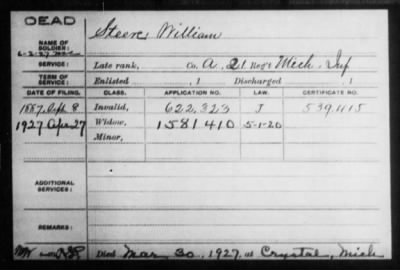 DEAD
NAME OF SOLDIER: Steere William
SERVICE: Late rank, Co. A, 21 Reg't Mich. Inf
TERM OF SERVICE: Enlisted , 1 Discharged , 1
DATE OF FILING. CLASS. APPLICATION NO. LAW. CERTIFICATE NO.
1887, Sept 8 Invalid, 622.323 J 539.415
1927 Apr 27 Widow, 1581410 5-1-20
Minor,
ADDITIONAL SERVICES:
REMARKS:
Died Mar 30, 1927, at Crystal, Mich